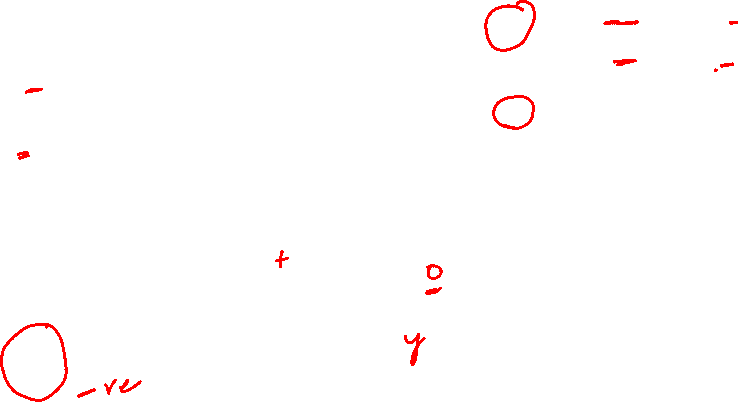 +
0
y
-ve